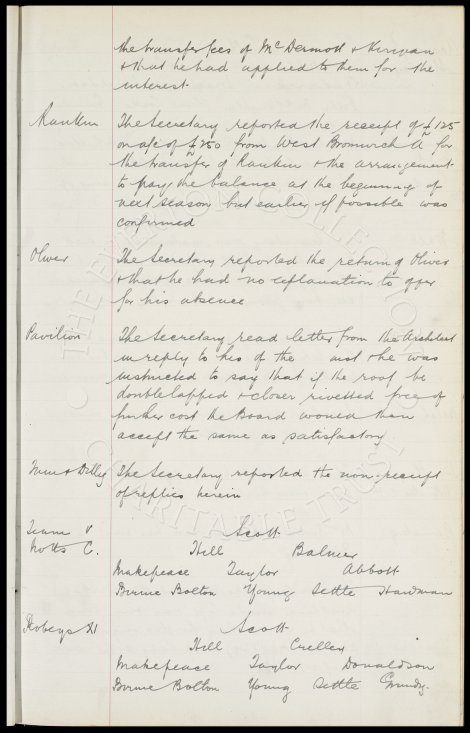 the transfer fees of McDermott & Kirwan
& that he had applied to them for the
interest.
Rankin
The Secretary reported the receipt of £125
on a/c of £250 from West Bromwich A for
the transfer of Rankin & the arrangement
to pay the balance at the beginning of
next season but earlier if possible was
confirmed
Oliver
The Secretary reported the return of Oliver
& that he had no explanation to offer
for his absence
Pavilion
The Secretary read letter from the Architect
in reply to his of the inst & he was
instructed to say that if the roof be
double lapped & closer rivetted free of
further cost the Board would then
accept the same as satisfactory
& Dilly
The Secretary reported the non-receipt
of replies herein
Team v
Notts C.
Scott
Hill Balmer
Makepeace Taylor Abbott
Birnie Bolton Young Settle Hardman
XI
Scott
Hill Crelley
Makepeace Taylor Donaldson
Birnie Bolton Young Settle Grundy.
THE EVERTON COLLECTION
CHARITABLE TRUST